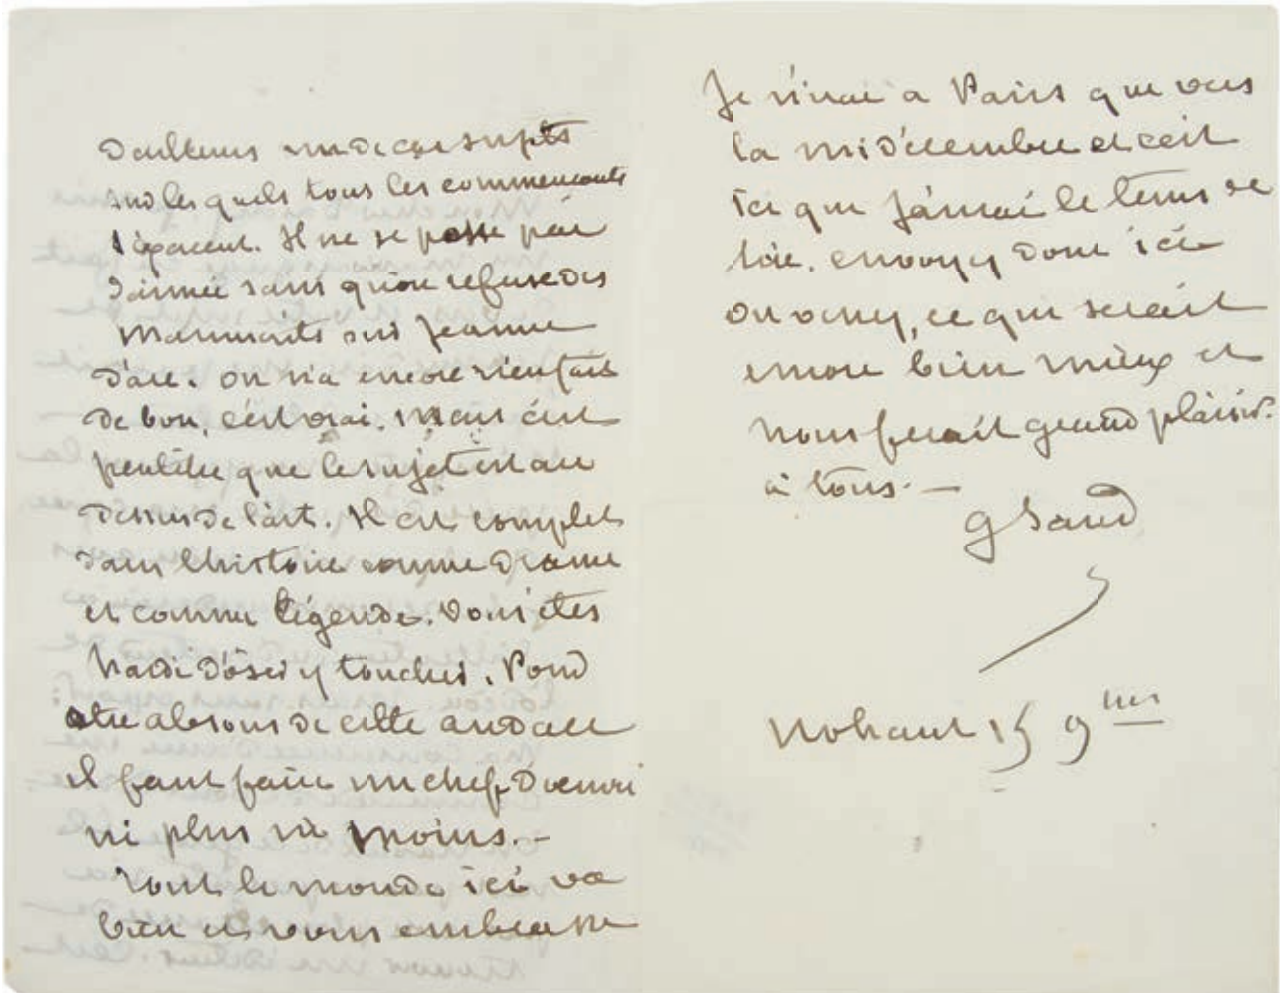 d'ailleurs un de ces sujets
sur lesquels tous les commençants
s'exercent. Il ne se passe pas
d'année sans qu'on refuse des
manuscrits sur Jeanne
d'arc. on n'a encore rien fait
de bon, c'est vrai. Mais c'est
peutêtre que le sujet est au
dessus de l'art. Il est complet
dans l'histoire comme drame
et comme légende. Vous êtes
hardi d'oser y toucher. Pour
être absous de cette audace
il faut faire un chef d'œuvre
ni plus ni moins. –
Tout le monde ici va
bien et vous embrasse
Je n'irai à Paris que vers
la mi décembre et c'est
ici que j'aurai le tems de
lire. envoyez donc ici
ou venez, ce qui serait
encore bien mieux et
nous ferait grand plaisir
à tous. —
G Sand
Nohant 15 9bre